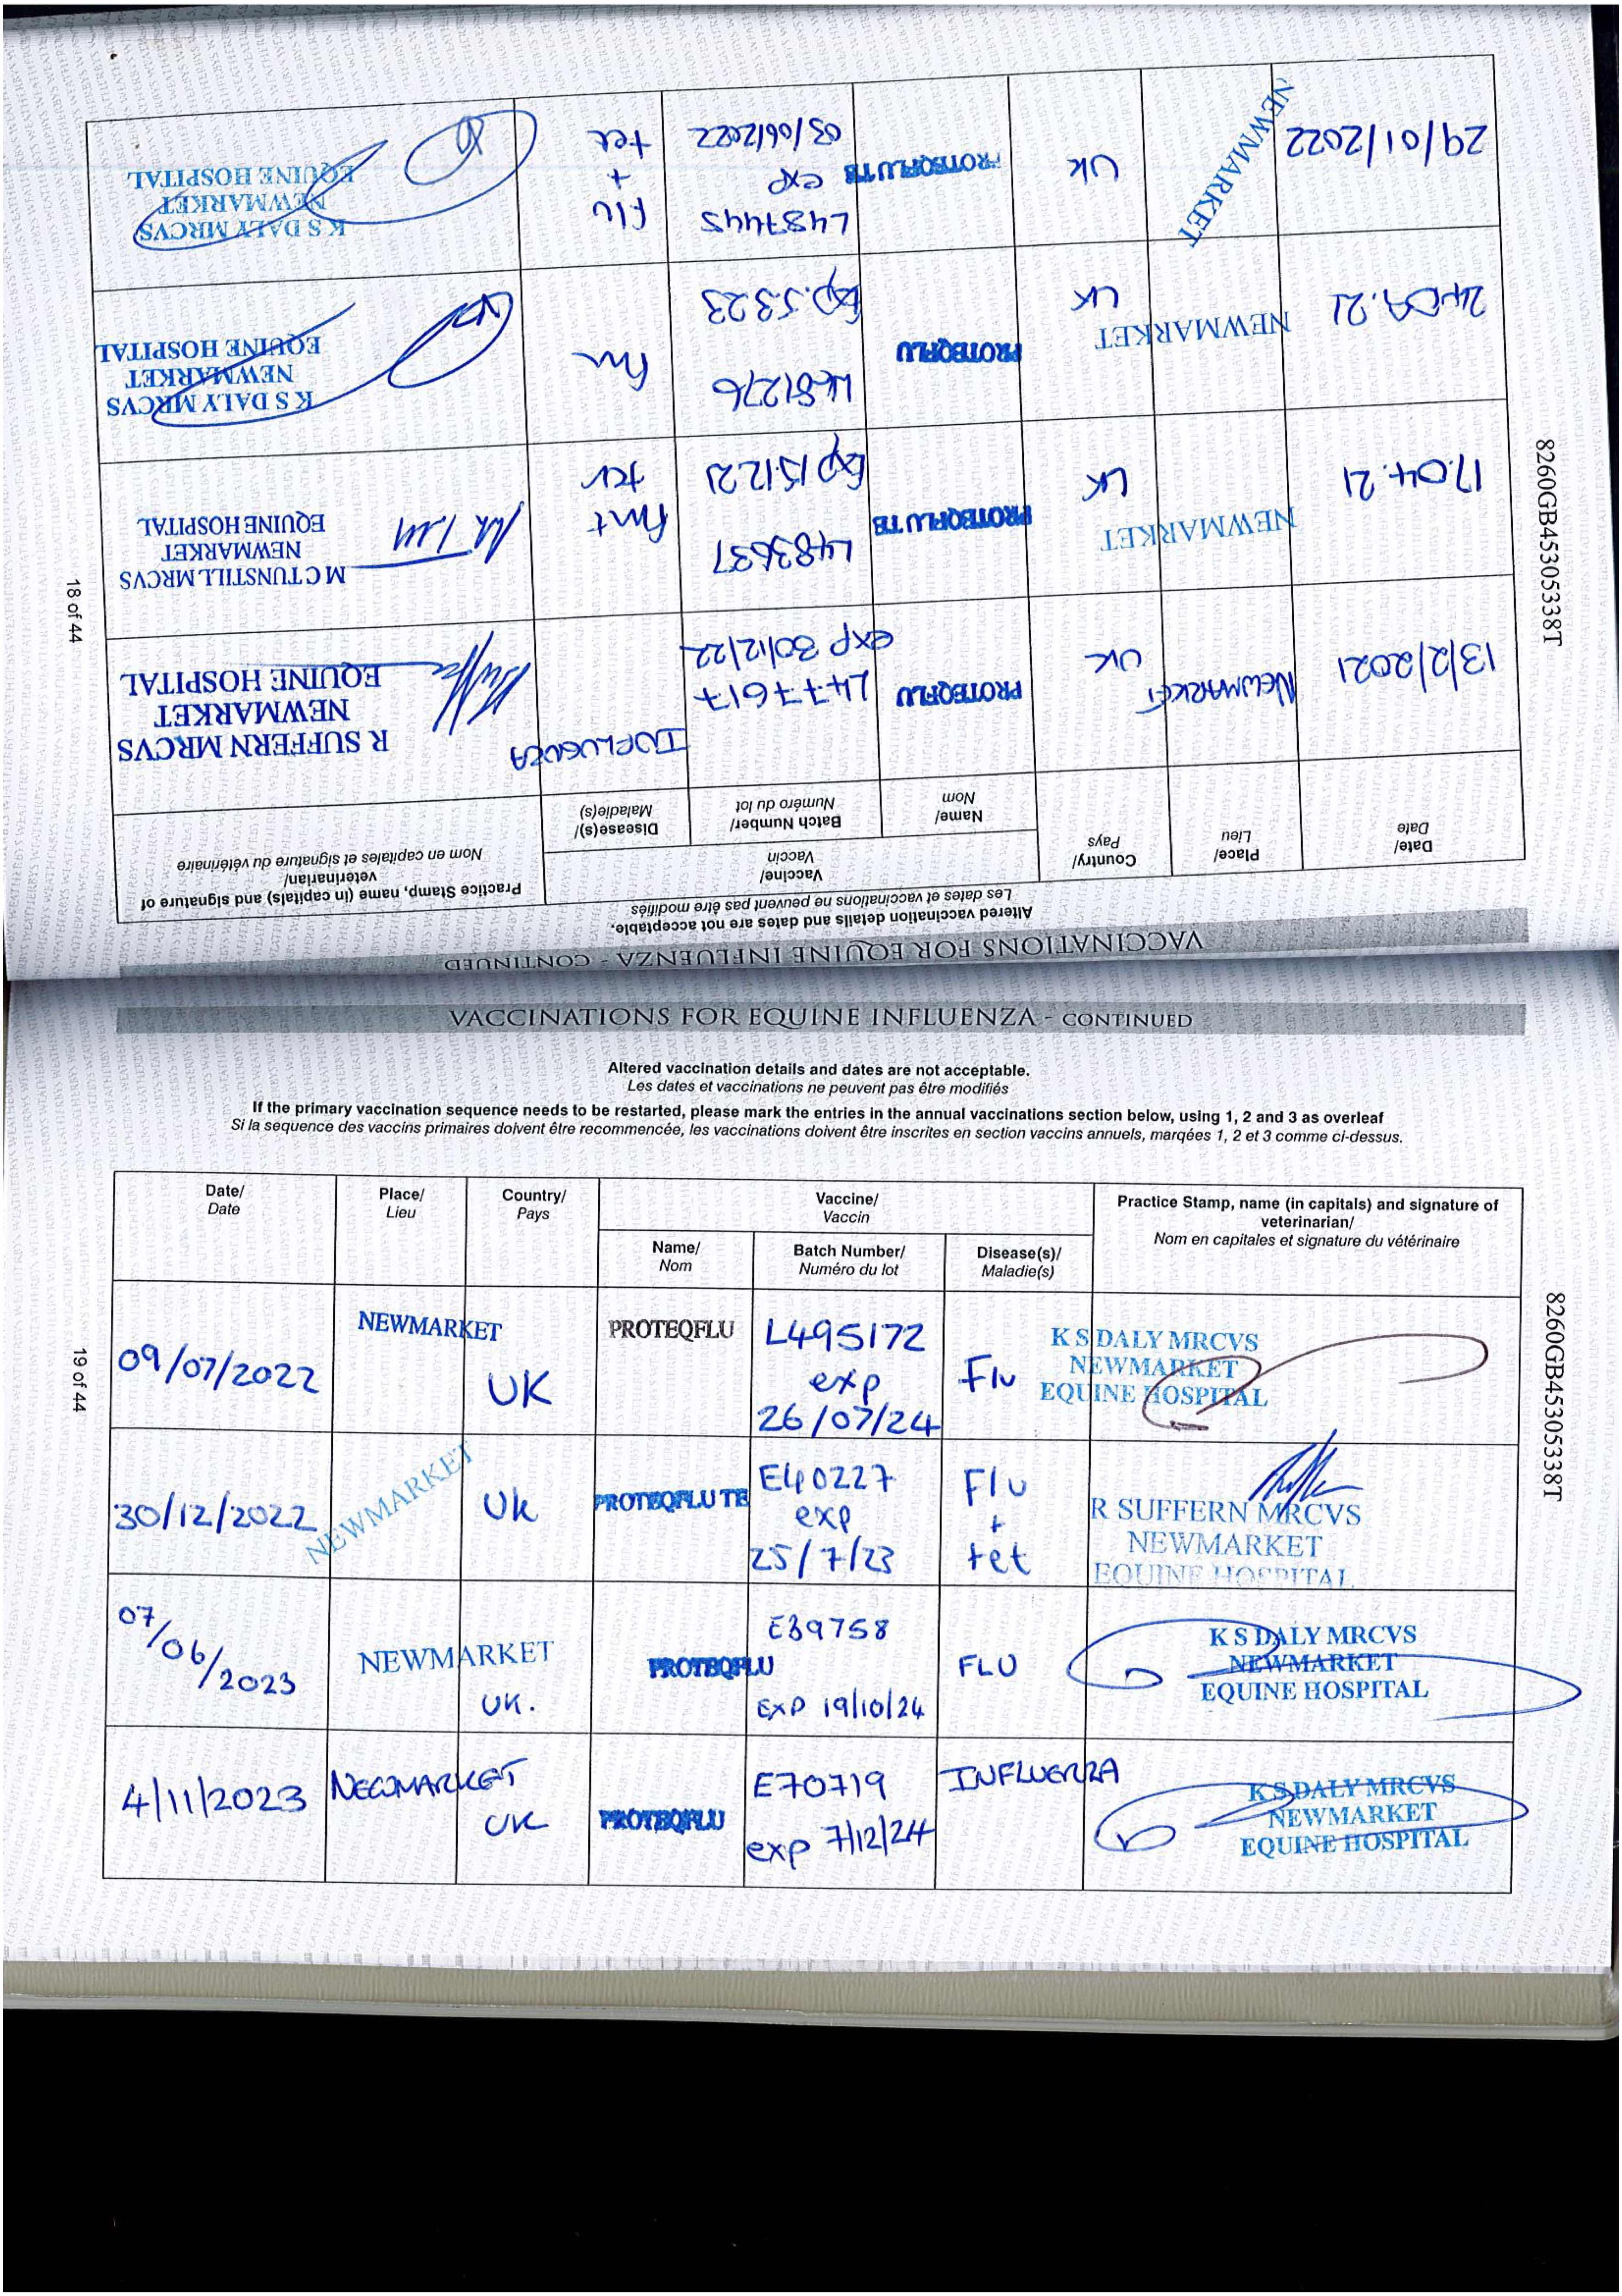 VACCINATIONS FOR EQUINE INFLUENZA - CONTINUED
Altered vaccination details and dates are not acceptable.
Les dates et vaccinations ne peuvent pas être modifiés
Date/
Date
Place/
Lieu
Country/
Pays
Vaccine/
Vaccin
Name/
Nom
Batch Number/
Numéro du lot
Disease(s)/
Maladie(s)
Practice Stamp, name (in capitals) and signature of
veterinarian/
Nom en capitales et signature du vétérinaire
13/2/2021
NEWMARKET
UK
PROTEQFLU
L477617
exp 30/12/22
INFLUENZA
R SUFFERN MRCVS
NEWMARKET
EQUINE HOSPITAL
17.04.21
NEWMARKET
UK
PROTEQFLU TE
L483637
Exp 15/12/21
tet
M C TUNSTILL MRCVS
NEWMARKET
EQUINE HOSPITAL
NEWMARKET
UK
PROTEQFLU
Flu
K S DALY MRCVS
NEWMARKET
EQUINE HOSPITAL
29/01/2022
NEWMARKET
UK
PROTEQFLU TE
L487445
exp
03/06/2022
Flu
+
tet
K S DALY MRCVS
NEWMARKET
EQUINE HOSPITAL
18 of 44
8260GB45305338T
VACCINATIONS FOR EQUINE INFLUENZA - CONTINUED
Altered vaccination details and dates are not acceptable.
Les dates et vaccinations ne peuvent pas être modifiés
If the primary vaccination sequence needs to be restarted, please mark the entries in the annual vaccinations section below, using 1, 2 and 3 as overleaf
Si la sequence des vaccins primaires doivent être recommencée, les vaccinations doivent être inscrites en section vaccins annuels, marqées 1, 2 et 3 comme ci-dessus.
Date/
Date
Place/
Lieu
Country/
Pays
Vaccine/
Vaccin
Name/
Nom
Batch Number/
Numéro du lot
Disease(s)/
Maladie(s)
Practice Stamp, name (in capitals) and signature of
veterinarian/
Nom en capitales et signature du vétérinaire
09/07/2022
NEWMARKET
UK
PROTEQFLU
L495172
exp
26/07/24
Flu
K S DALY MRCVS
NEWMARKET
EQUINE HOSPITAL
30/12/2022
NEWMARKET
UK
PROTEQFLU TE
E40227
exp
25/7/23
Flu
+
tet
R SUFFERN MRCVS
NEWMARKET
EQUINE HOSPITAL
07/06/2023
NEWMARKET
UK.
PROTEQFLU
E39758
EXP 19/10/24
FLU
K S DALY MRCVS
NEWMARKET
EQUINE HOSPITAL
4/11/2023
NEWMARKET
UK
PROTEQFLU
E70719
exp 7/12/24
INFLUENZA
K S DALY MRCVS
NEWMARKET
EQUINE HOSPITAL
19 of 44
8260GB45305338T